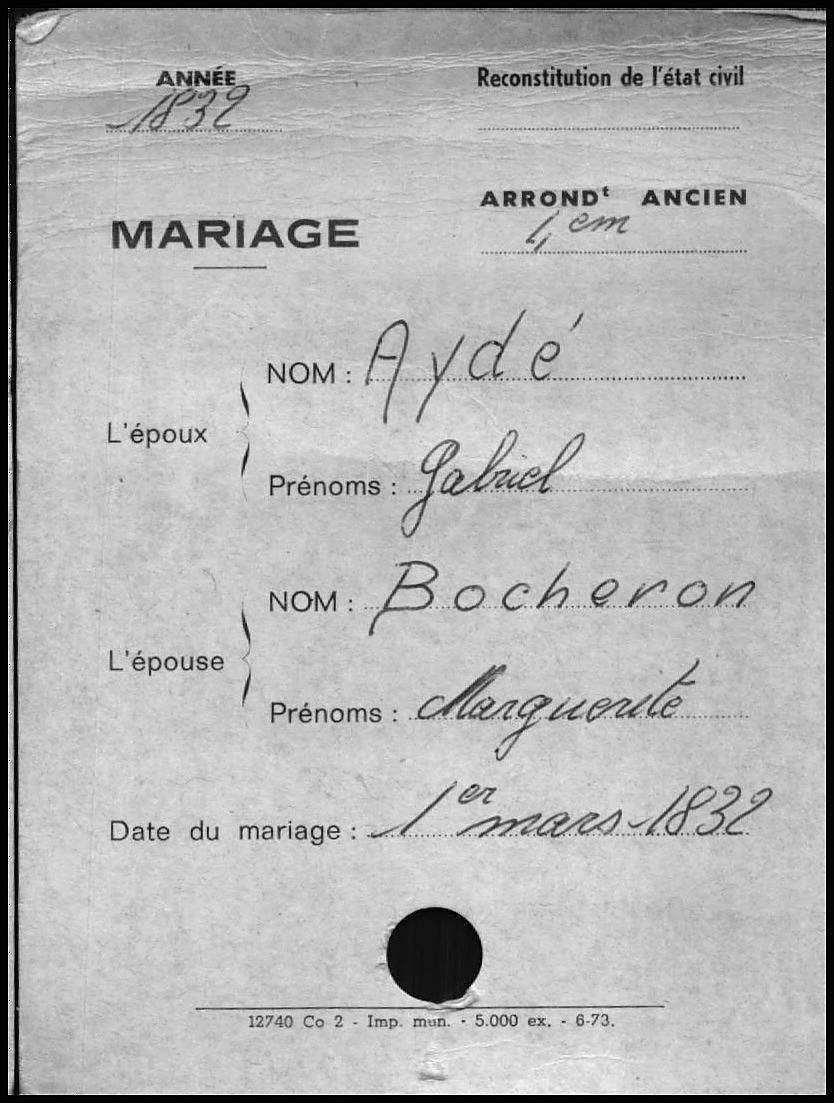 ANNÉE
1832
Reconstitution de l'état civil
ARRONDt ANCIEN
4em
MARIAGE
L'époux
NOM : Aydé
Prénoms : Gabriel
L'épouse
NOM : Bocheron
Prénoms : Marguerite
Date du mariage : 1er mars 1832
12740 Co 2 - Imp. mun. - 5.000 ex. - 6-73.